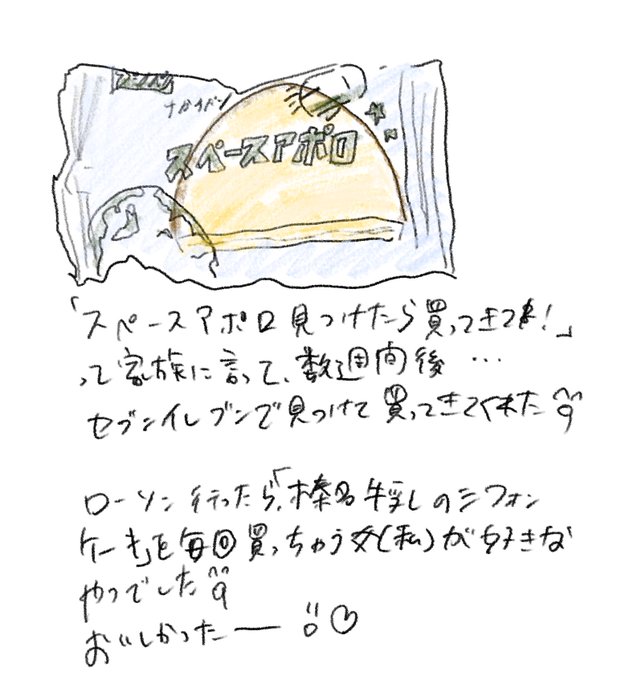 ナカイパン
スペースアポロ
「スペースアポロ見つけたら買ってきてね!」
って家族に言って、数週間後…
セブンイレブンで見つけて買ってきてくれた
ローソン行ったら、「榛名牛乳のシフォン
ケーキ」を毎回買っちゃう女(私)が好きな
やつでした
おいしかったー